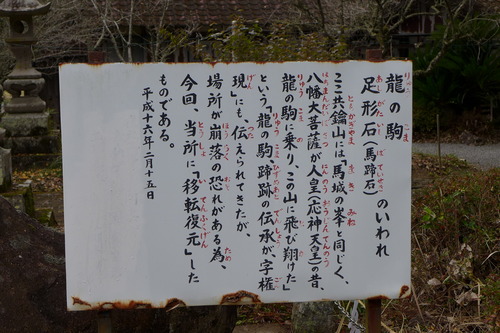 龍の駒
足形石(馬蹄石)のいわれ
ここ共鑰山には、「馬城の峯と同じく、
八幡大菩薩が人皇(応神天皇)の昔、
龍の駒に乗り、この山に飛び翔けた」
という「龍の駒蹄跡の伝承が、字権
現」にも、伝えられてきたが、
場所が崩落の恐れがある為、
今回、当所に「移転復元」した
ものである。
平成十六年二月十五日